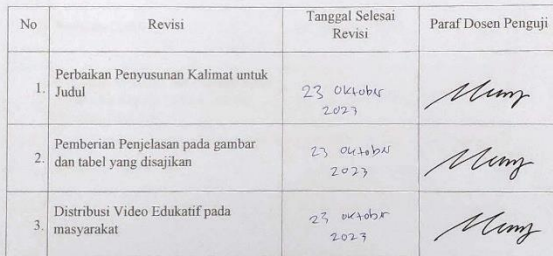 No Revisi Tanggal Selesai Revisi Paraf Dosen Penguji
1. Perbaikan Penyusunan Kalimat untuk
Judul
23 Oktober
2023
2. Pemberian Penjelasan pada gambar
dan tabel yang disajikan
23 Oktober
2023
3. Distribusi Video Edukatif pada
masyarakat
23 Oktober
2023